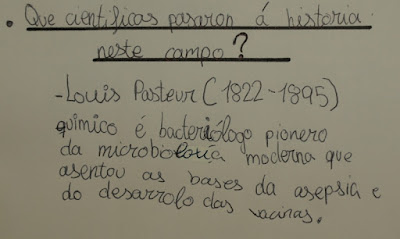 . Que cientificas pasaron á historia
neste campo?
- Louis Pasteur (1822-1895)
químico é bacteriólogo pionero
da microbioloxía moderna que
asentou as bases da asepsia e
do desarrolo das vacinas.